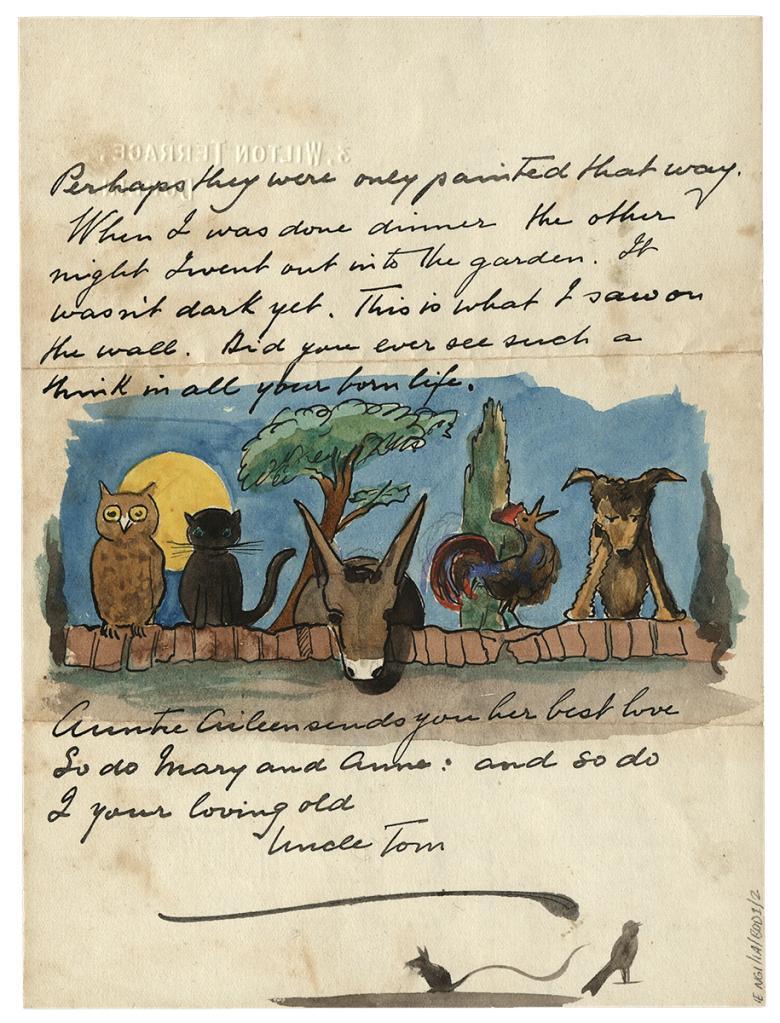 3, WILTON TERRACE,
Perhaps they were only painted that way.
When I was done dinner the other
night I went out into the garden. It
wasn't dark yet. This is what I saw on
the wall. Did you ever see such a
think in all your born life.
Auntie Aileen sends you her best love
So do Mary and Anne: and so do
I your loving old
Uncle Tom